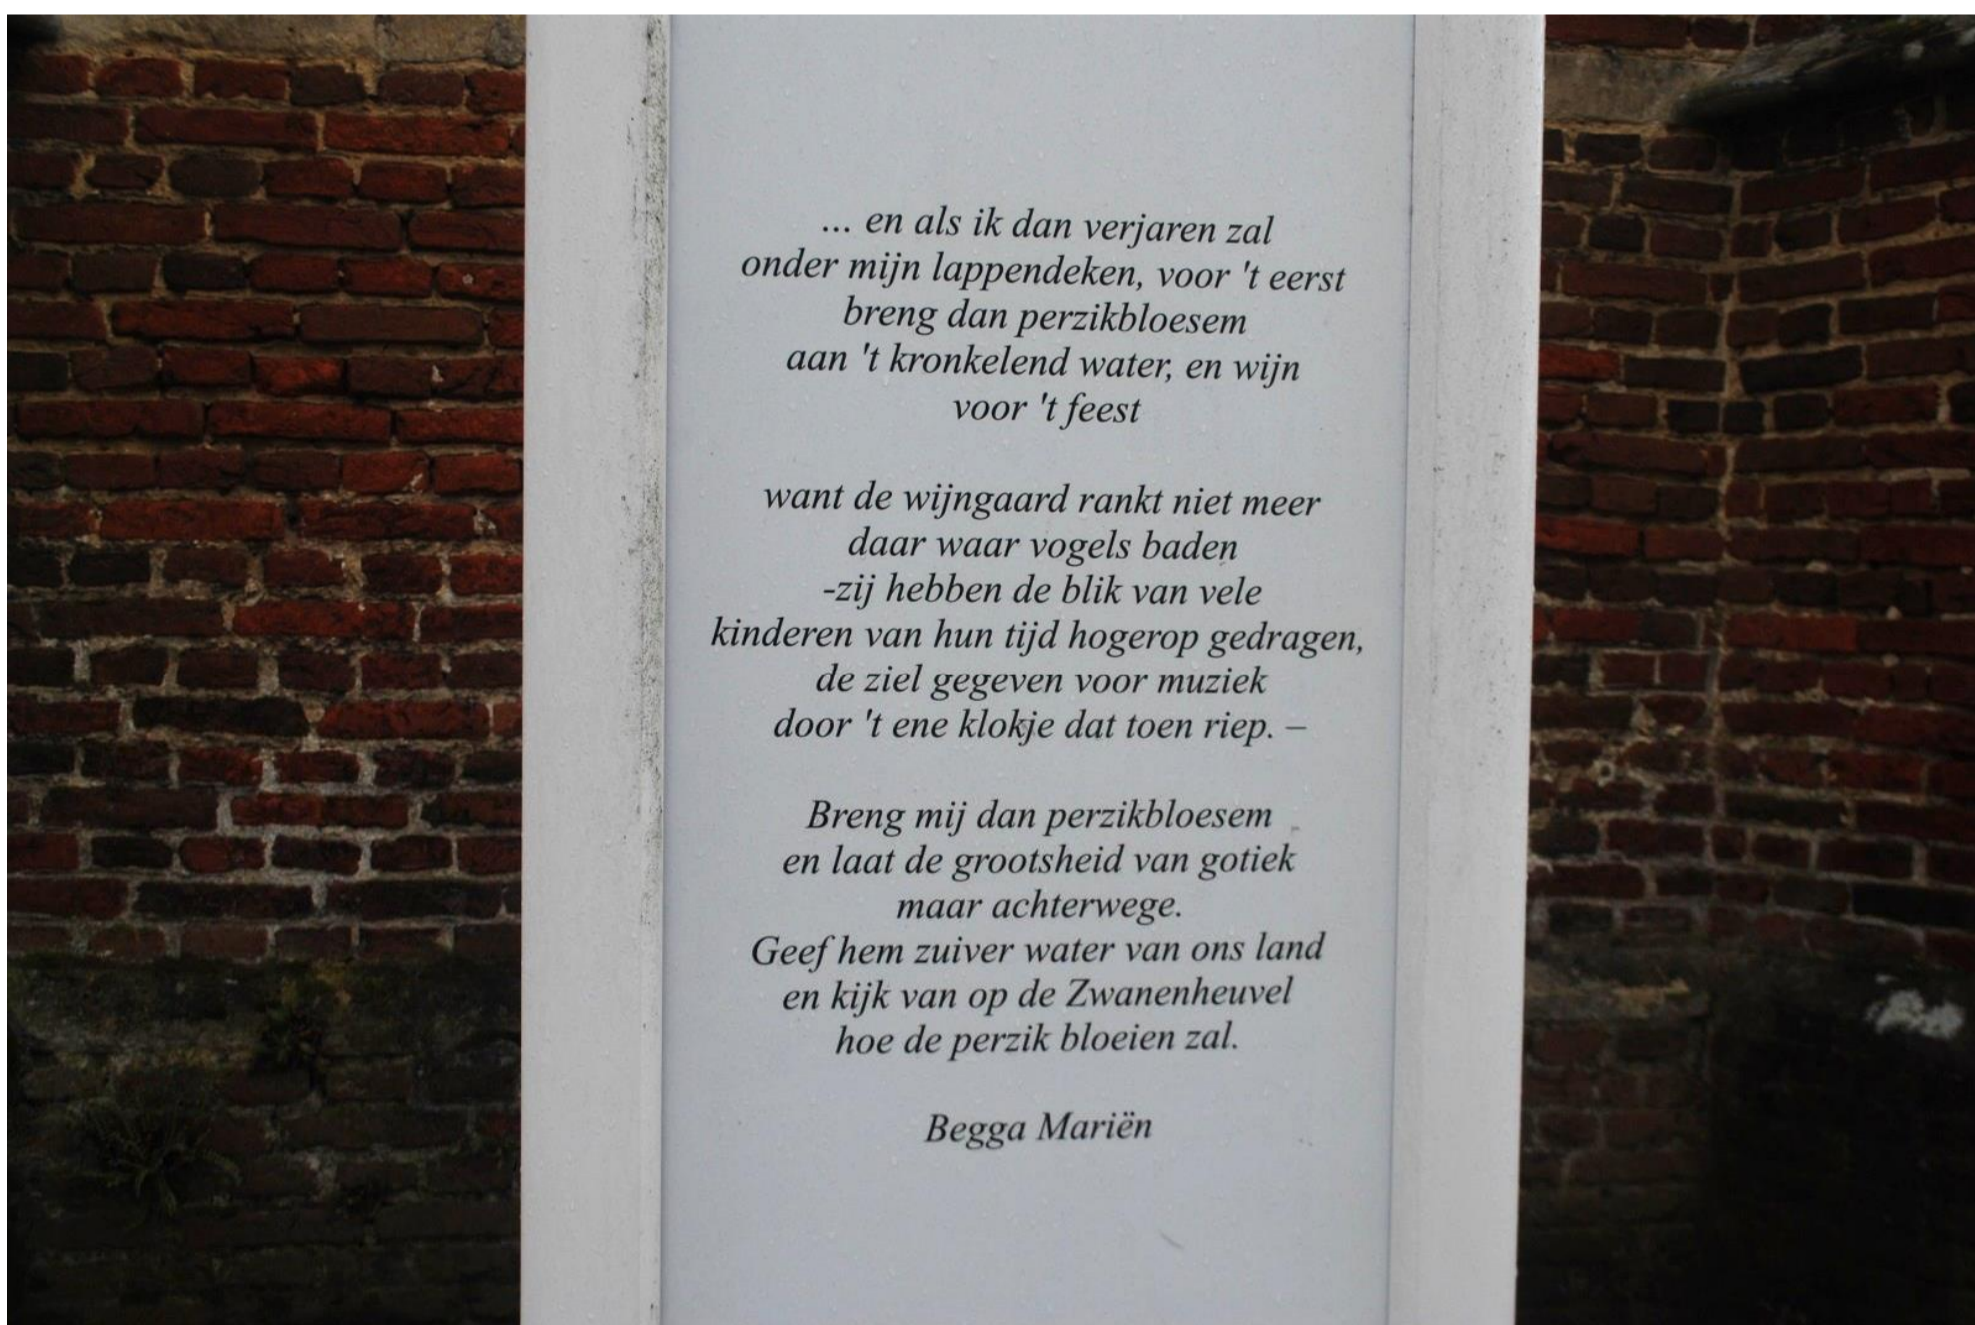 ... en als ik dan verjaren zal
onder mijn lappendeken, voor 't eerst
breng dan perzikbloesem
aan 't kronkelend water, en wijn
voor 't feest
want de wijngaard rankt niet meer
daar waar vogels baden
-zij hebben de blik van vele
kinderen van hun tijd hogerop gedragen,
de ziel gegeven voor muziek
door 't ene klokje dat toen riep. –
Breng mij dan perzikbloesem
en laat de grootsheid van gotiek
maar achterwege.
Geef hem zuiver water van ons land
en kijk van op de Zwanenheuvel
hoe de perzik bloeien zal.
Begga Mariën